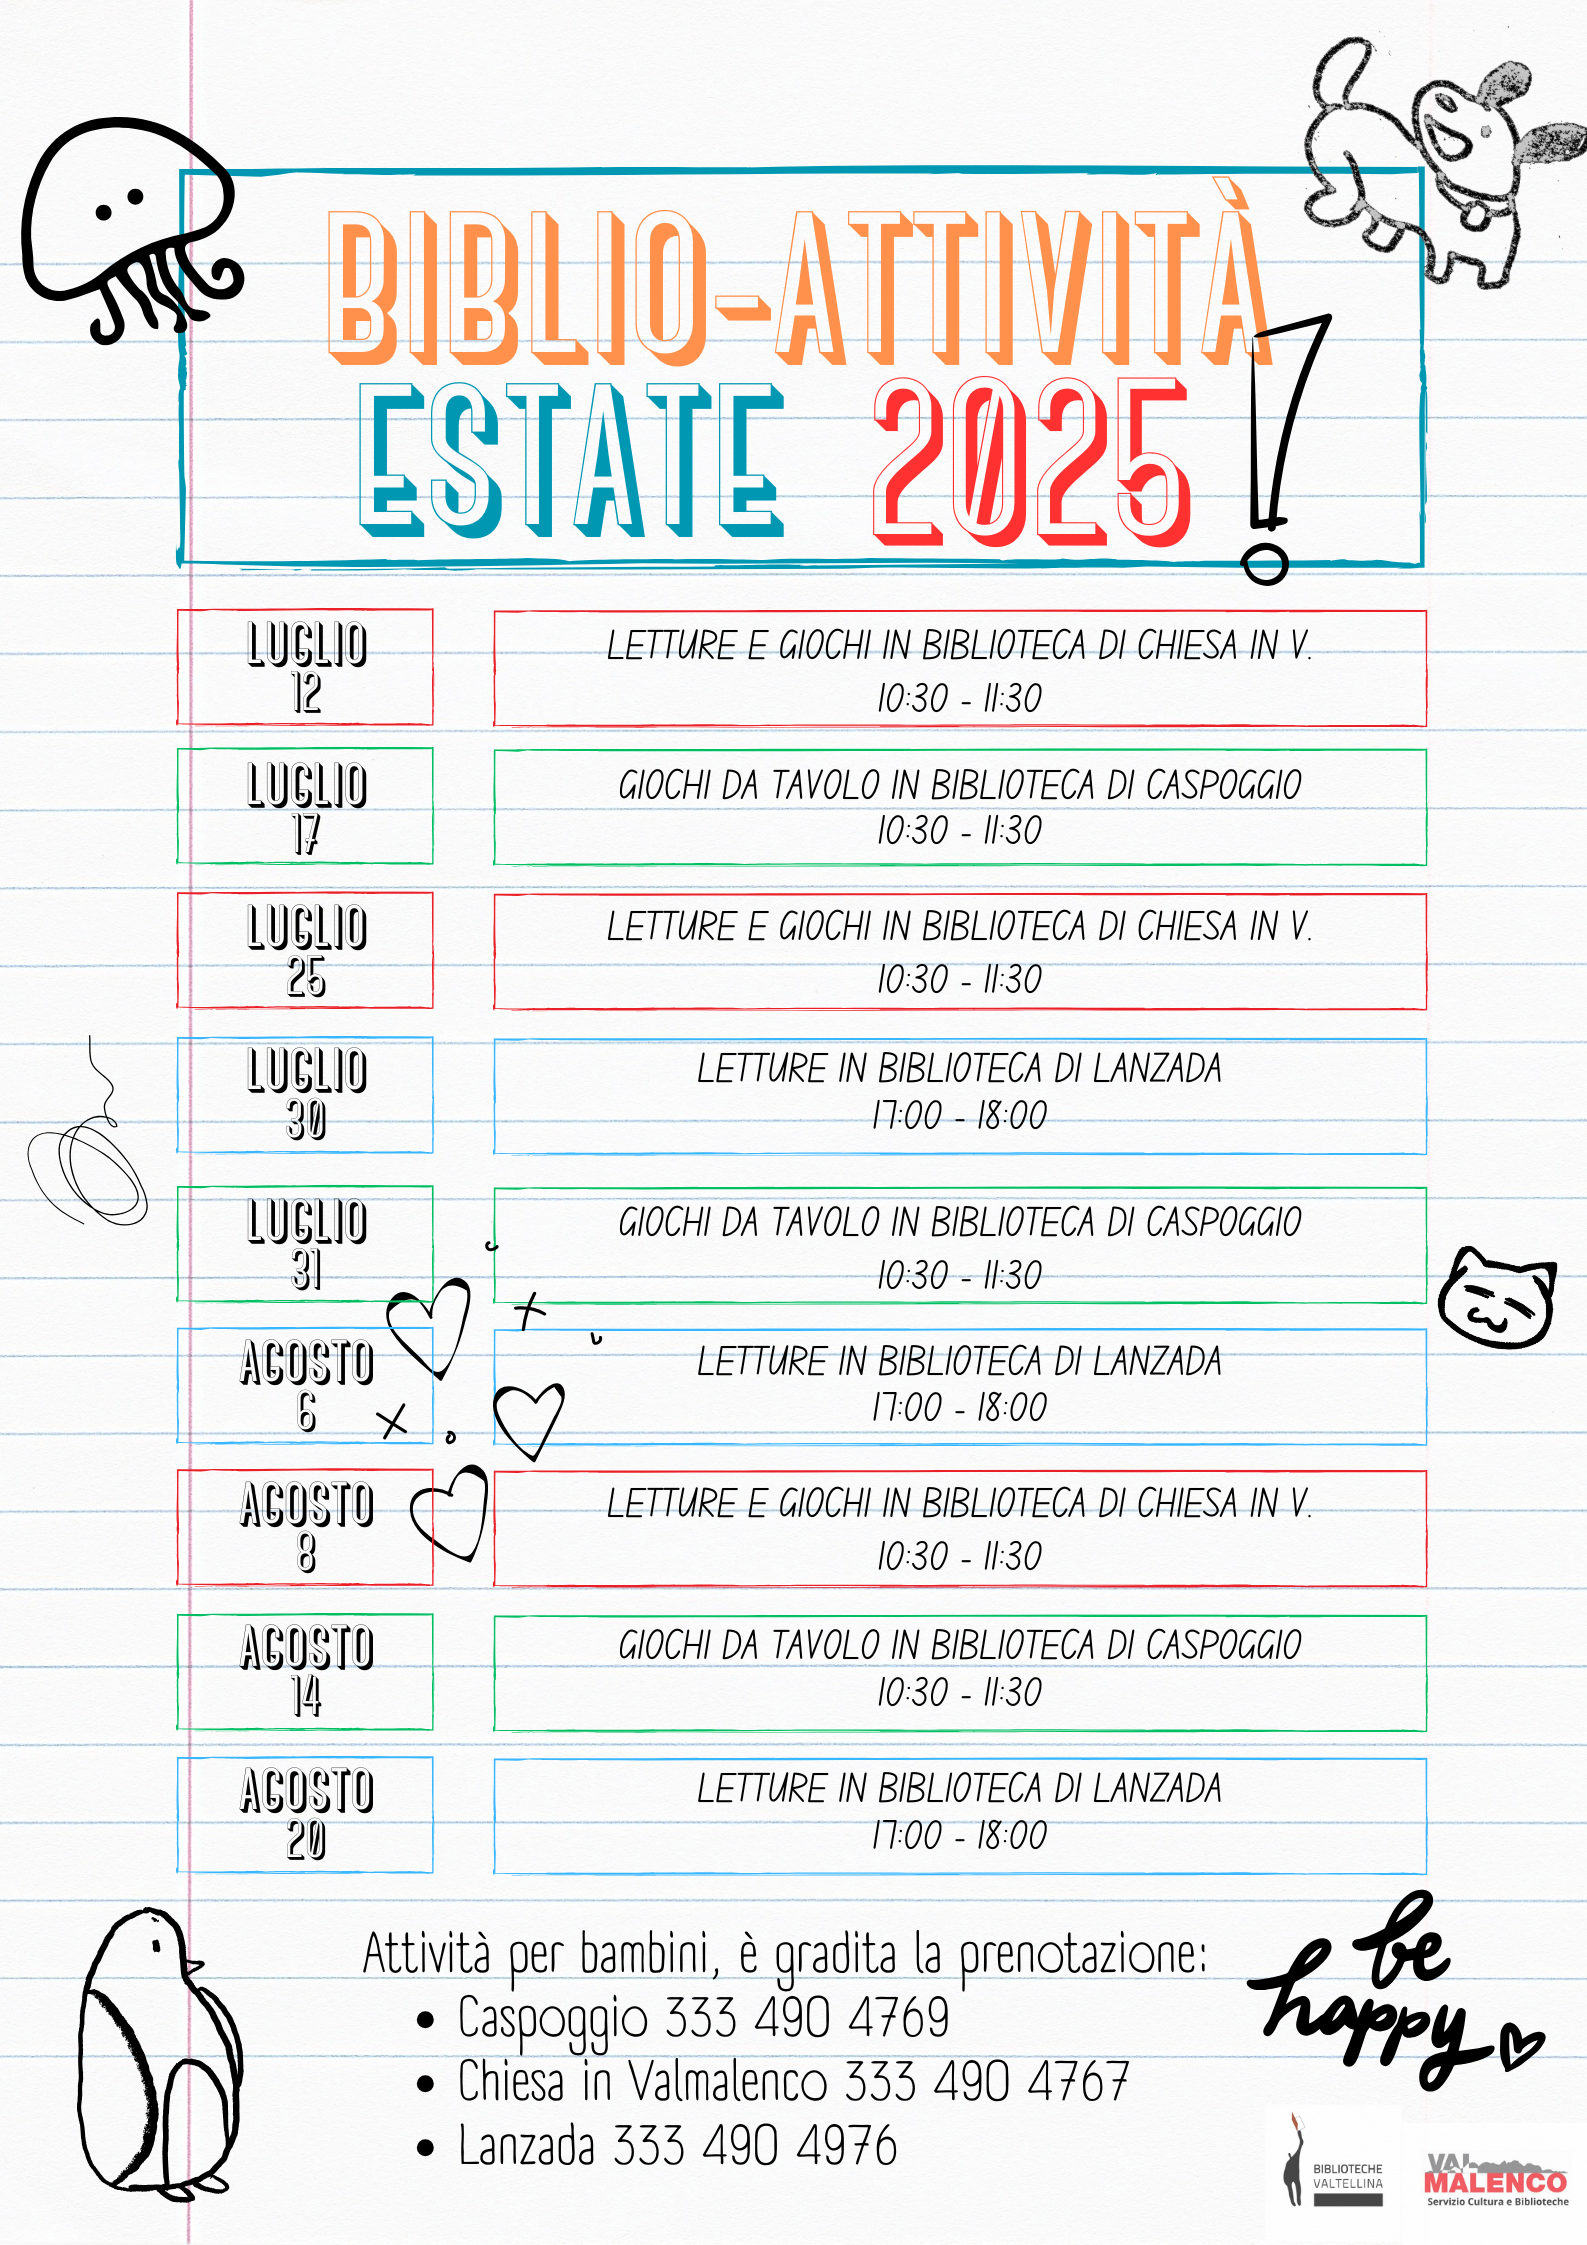 BIBLIO-ATTIVITÀ
ESTATE 2025!
LUGLIO
12
LETTURE E GIOCHI IN BIBLIOTECA DI CHIESA IN V.
10:30 - 11:30
LUGLIO
17
GIOCHI DA TAVOLO IN BIBLIOTECA DI CASPOGGIO
10:30 - 11:30
LUGLIO
25
LETTURE E GIOCHI IN BIBLIOTECA DI CHIESA IN V.
10:30 - 11:30
LUGLIO
30
LETTURE IN BIBLIOTECA DI LANZADA
17:00 - 18:00
LUGLIO
31
GIOCHI DA TAVOLO IN BIBLIOTECA DI CASPOGGIO
10:30 - 11:30
AGOSTO
6
LETTURE IN BIBLIOTECA DI LANZADA
17:00 - 18:00
AGOSTO
8
LETTURE E GIOCHI IN BIBLIOTECA DI CHIESA IN V.
10:30 - 11:30
AGOSTO
14
GIOCHI DA TAVOLO IN BIBLIOTECA DI CASPOGGIO
10:30 - 11:30
AGOSTO
20
LETTURE IN BIBLIOTECA DI LANZADA
17:00 - 18:00
Attività per bambini, è gradita la prenotazione:
• Caspoggio 333 490 4769
• Chiesa in Valmalenco 333 490 4767
• Lanzada 333 490 4976
be
happy
BIBLIOTECHE
VALTELLINA
VAL
MALENCO
Servizio Cultura e Biblioteche